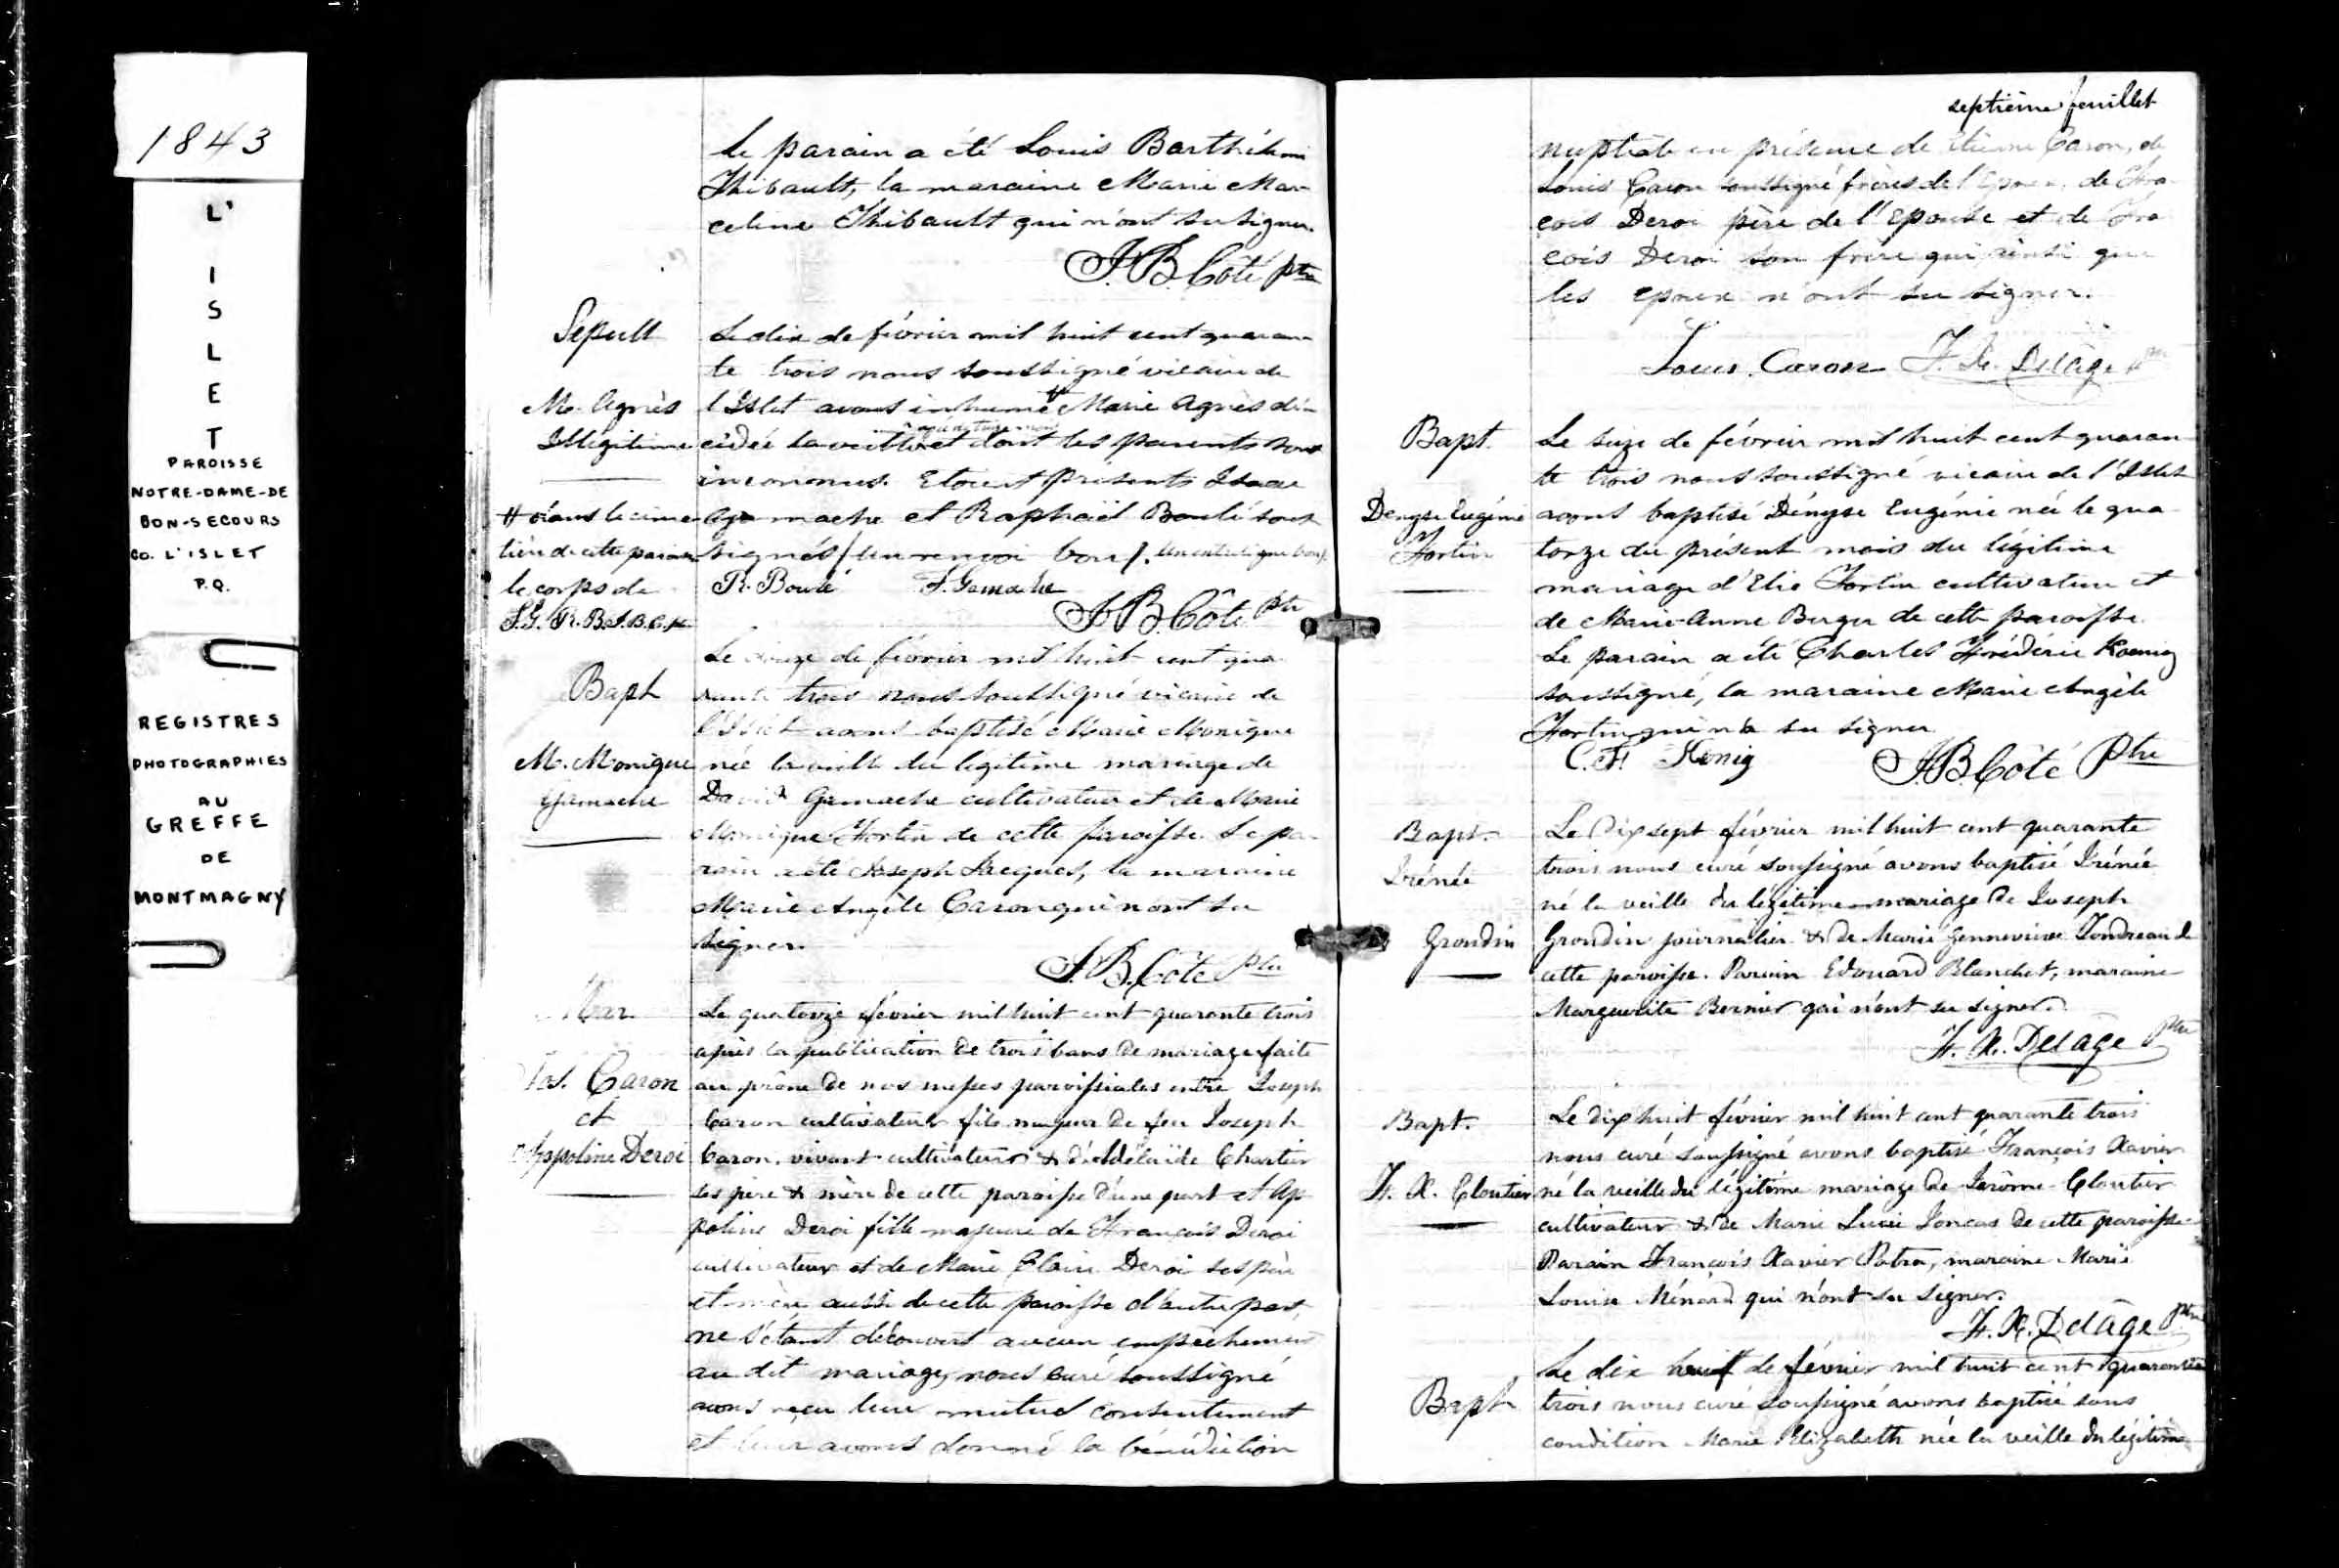 1843
L'
I
S
L
E
T
PAROISSE
NOTRE-DAME-DE
BON-SECOURS
CO. L'ISLET
P.Q.
REGISTRES
PHOTOGRAPHIES
AU
GREFFE
DE
MONTMAGNY
le parain a été Louis Barthélemi
Thibault, la maraine Marie Mar-
celine Thibault qui n'ont su signer.
J. B. Côté Ptre
Sepult
M. Agnès
Illégitime
# dans le cime-
tière de cette paroisse
le corps de
Le dix de février mil huit cent quaran-
te trois nous soussigné vicaire de
l'Islet avons inhumé # Marie Agnès dé-
cédée la veille et dont les parents sont
inconnus. Etoient présents Isaac
Gamache et Raphaël Boulé sous-
signés / un renvoi bon /. un entreligne bon /.
R. Boulé
I. Gamache
J. B. Côté Ptre
Bapt
M. Monique
Gamache
Le de février mil huit cent qua-
rante trois nous soussigné vicaire de
l'Islet avons baptisé Marie Monique
née la veille du légitime mariage de
David Gamache cultivateur et de Marie
Monique Fortin de cette paroisse. Le pa-
rain a été Joseph Jacques, la maraine
Marie Angèle Caron qui n'ont su
signer.
J. B. Côté Ptre
Mar.
Jos. Caron
et
Appoline Deroi
Le quatorze février mil huit cent quarante trois
après la publication de trois bans de mariage faite
au prône de nos messes paroissiales entre Joseph
Caron cultivateur fils majeur de feu Joseph
Caron, vivant cultivateur & d'Adélaïde Chartier
ses père & mère de cette paroisse d'une part et Ap-
poline Deroi fille majeure de François Deroi
cultivateur et de Marie Claire Deroi ses père
et mère aussi de cette paroisse d'autre part,
ne s'étant découvert aucun empêchement
au dit mariage, nous curé soussigné
avons reçu leur mutuel consentement
et leur avons donné la bénédiction
septième feuillet
nuptiale en présence de Etienne Caron, de
Louis Caron soussigné frères de l'époux, de Fra-
çois Deroi père de l'Epouse et de Fra
çois Deroi son frère qui ainsi que
les epoux n'ont su signer.
Louis Caron
F. X. Delâge Ptre
Bapt.
Denyse Eugénie
Fortin
Le seize de février mil huit cent quaran-
te trois nous soussigné vicaire de l'Islet
avons baptisé Dényse Eugénie née le qua-
torze du présent mois du légitime
mariage d'Elie Fortin cultivateur et
de Marie-Anne Berger de cette paroisse.
Le parain a été Charles Frédéric Koenig
soussigné, la maraine Marie Angèle
Fortin qui n'a su signer
C. F. Kœnig
J. B. Côté Ptre
Bapt.
Irénée
Grondin
Le Dix sept février mil huit cent quarante
trois nous curé soussigné avons baptisé Irénée
né la veille du légitime mariage de Joseph
Grondin journalier & de Marie Gennevieve Tondreau de
cette paroisse. Parain Edouard Blanchet, maraine
Marguerite Bernier qui n'ont su signer.
F. X. Delâge Ptre
Bapt.
F. X. Cloutier
Le dix huit février mil huit cent quarante trois
nous curé soussigné avons baptisé François Xavier
né la veille du légitime mariage de Jerôme Cloutier
cultivateur & de Marie Lucie Joncas de cette paroisse.
Parain François Xavier Potra, maraine Marie
Louise Ménard qui n'ont su signer.
F. X. Delâge Ptre
Bapt
Le dix huit de février mil huit cent quarante
trois nous curé soussigné avons baptisé sous
condition Marie Elizabeth née la veille du légitime